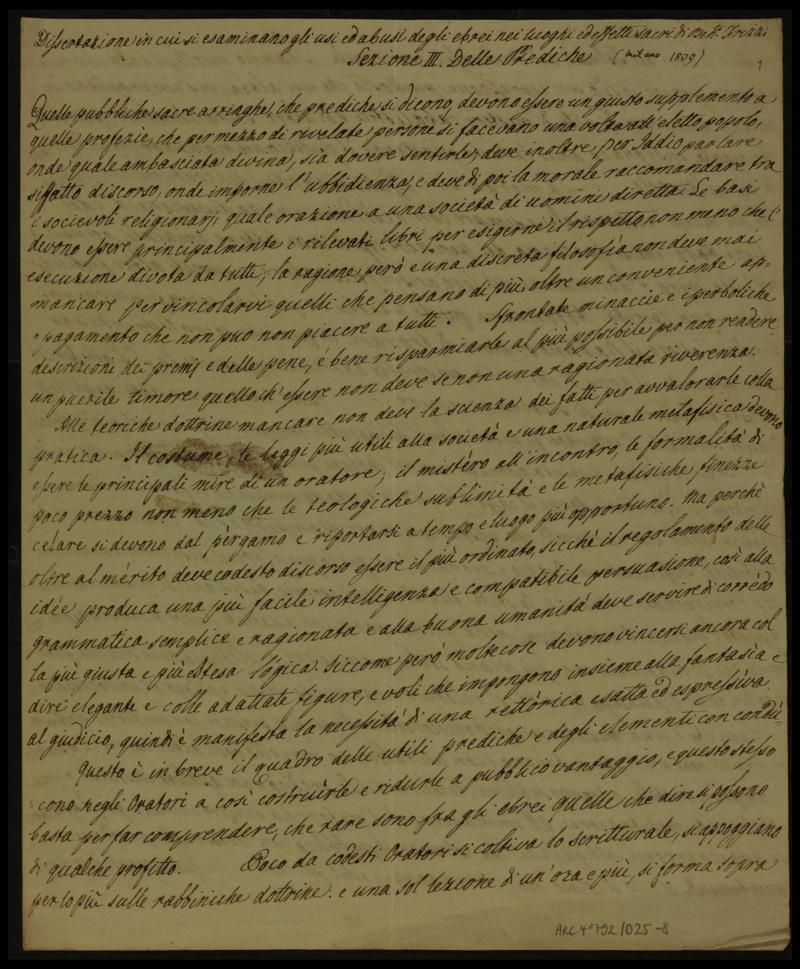 Dissertazione in cui si esaminano gli usi ed abusi degli ebrei nei luoghi ed effetti sacri di Ben. Frizzi
Sezione III. Delle Prediche (Milano 1809)
1
Quelle pubbliche sacre arringhe, che prediche si dicono, devono essere un giusto supplemento a
quelle profezie, che per mezzo di rivelate persone si facevano una volta all' eletto popolo,
onde quale ambasciata divina, sia dovere sentirle, deve inoltre per Iddio parlare
siffatto discorso, onde imporne l'ubbidienza, e deve di poi la morale raccomandare tra
i socievoli religionarj, quale orazione a una società di uomini diretta. Le basi
devono essere principalmente i rilevati libri per esigerne il rispetto non meno che l'
esecuzione divota da tutti, la ragione però e una discreta filosofia non deve mai
mancare per vincolarvi quelli che pensano di più, oltre un conveniente ap=
=pagamento che non può non piacere a tutti. Sfrontate minaccie e iperboliche
descrizione dei premj e delle pene, é bene risparmiarle al più possibile per non rendere
un puerile timore quello ch'essere non deve se non una ragionata riverenza.
Alle teoriche dottrine mancare non deve la scienza dei fatti per avvalorarle colla
pratica. Il costume, le leggi più utili alla società e una naturale metafisica devono
essere le principali mire di un oratore; il mistèro all'incontro, le formalità di
poco prezzo non meno che le teologiche sublimità e le metafisiche finezze
celare si devono dal pèrgamo e riportarsi a tempo e luogo più opportuno. Ma perchè
oltre al mérito deve codesto discorso essere il più ordinato, sicchè il regolamento delle
idée produca una più facile intelligenza e compatibile persuasione, così alla
grammatica semplice e ragionata e alla buona umanità deve servire di corrèdo
la più giusta e più estesa lógica. Siccome però molte cose devono vincersi ancora col
dire elegante e colle adattate figure, e voli che impongono insieme alla fantasia e
al giudicio, quindi è manifesta la necessità di una rettòrica esatta ed espressiva.
Questo è in breve il quadro delle utili prediche e degli elementi con condu=
=cono negli Oratori a così costruirle e ridurle a pubblico vantaggio, e questo stesso
basta per far comprendere, che rare sono fra gli ebrei quelle che dir si possono
di qualche profitto. Poco da codesti Oratori si coltiva lo scritturale, si appoggiano
per lo più sulle rabbiniche dottrine. e una sol lezione di un'ora e più, si forma sopra
ARC 4° 792/025-8